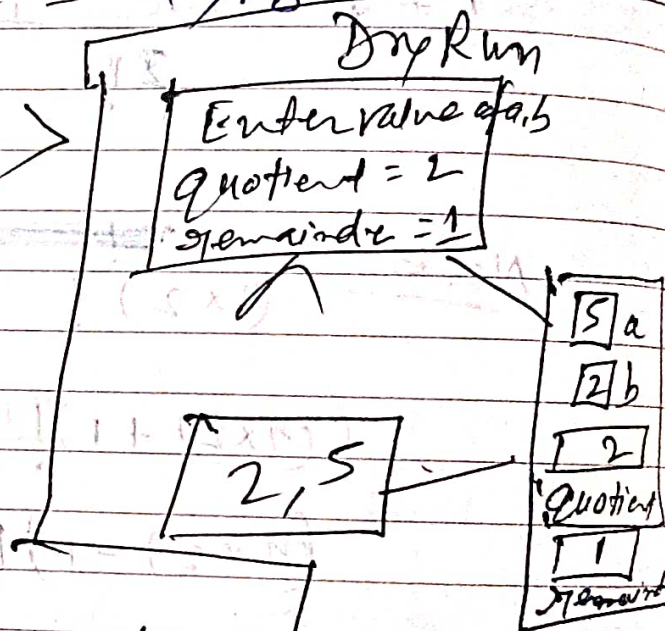 Dry Run
Enter value of a,b
quotient = 2
remainder = 1
5 a
2 b
2
quotient
1
2, 5